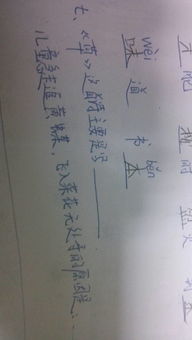 wèi běn
味道 书本
七、《草》这首诗主要是写______
儿童急走追黄蝶,飞入菜花无处寻的原因是: